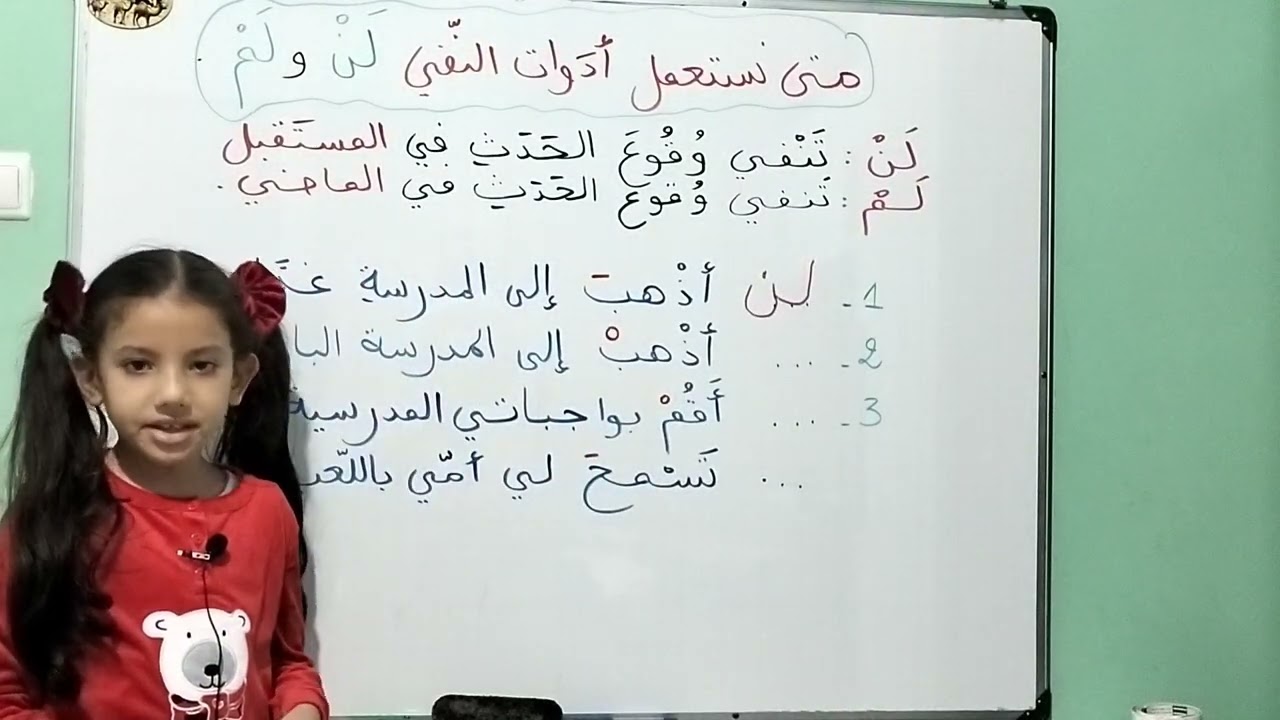 متى نستعمل أدَوات النّفي لَنْ و لَمْ
لَنْ : تَنْفي وُقُوعَ الحَدَثِ في المستَقبل
لَمْ : تَنفي وُقوعَ الحَدَثِ في الماضي .
1- لن أذْهبَ إلى المدرسةِ
2- ... أذْهبْ إلى المدرسة
3- ... أَقُمْ بواجباتي المدرسية
... تَسْمحَ لي أمّي باللّعب